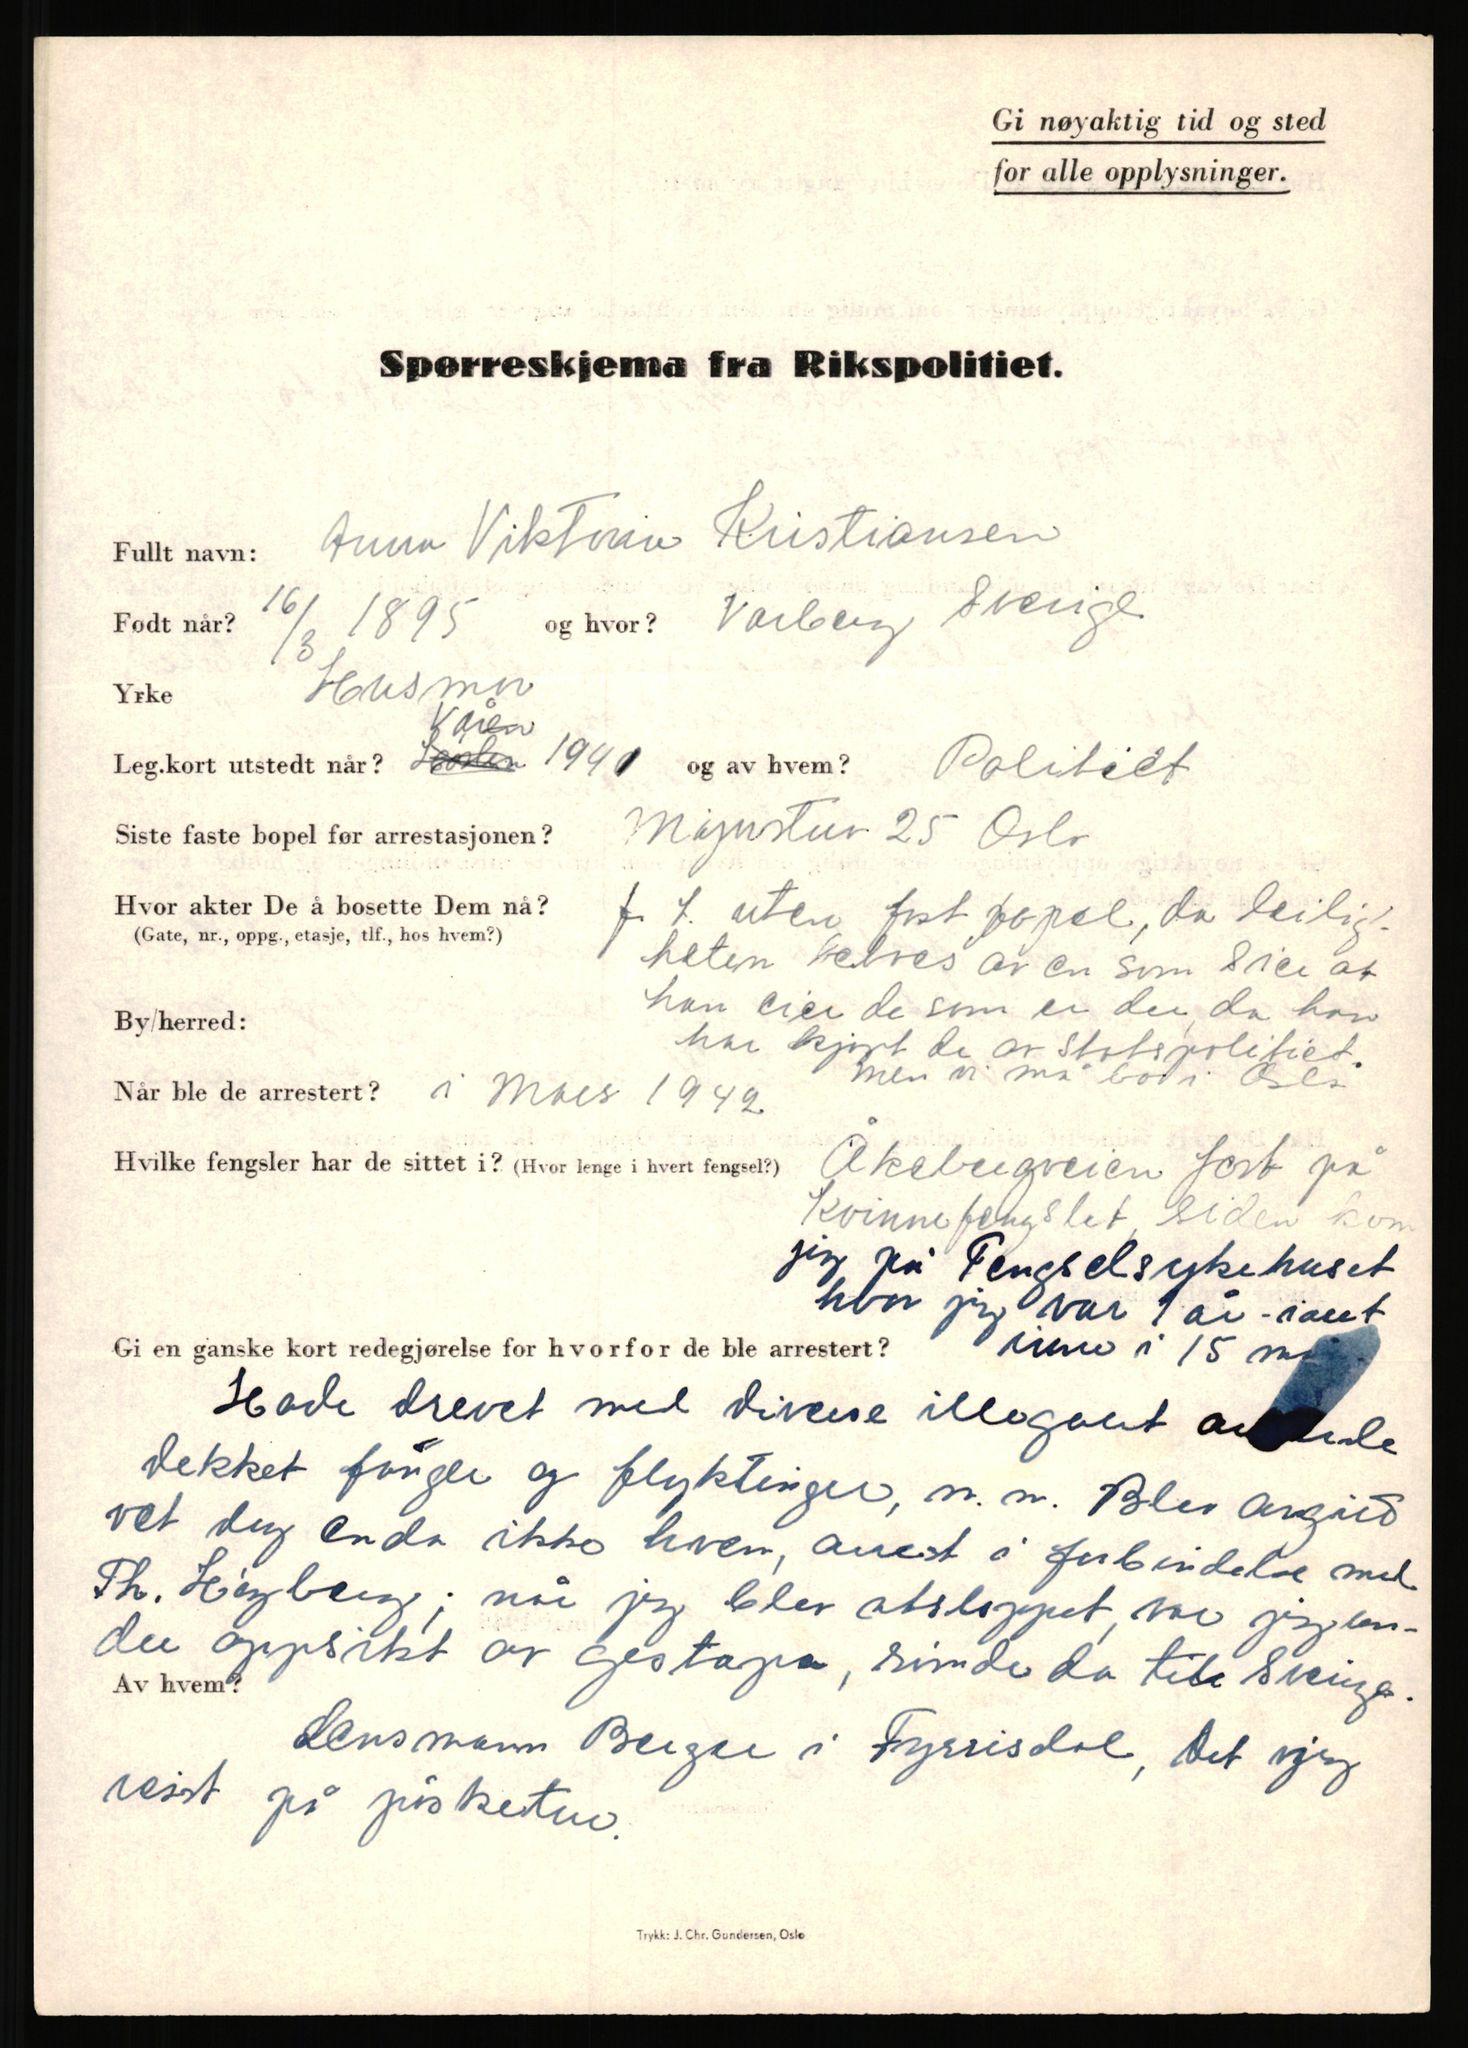 Gi nøyaktig tid og sted
for alle opplysninger.
Spørreskjema fra Rikspolitiet.
Fullt navn: Anna Viktoria Kristiansen
Født når? 16/3 1895 og hvor? Varberg Sverige
Yrke Husmor
Våren
Leg.kort utstedt når? 1941 og av hvem? Politiet
Siste faste bopel før arrestasjonen? Majorstuv 25 Oslo
Hvor akter De å bosette Dem nå? f. t. uten fast popel, da leilig-
(Gate, nr., oppg., etasje, tlf., hos hvem?)
heten av en som sier at
han eier de som er der, da han
By/herred:
har kjøpt de av statspolitiet.
men vi må bo i Oslo
Når ble de arrestert? i Mars 1942
Hvilke fengsler har de sittet i? (Hvor lenge i hvert fengsel?) Åkebergveien først på
Kvinnefengslet, siden kom
jeg på Fengselsykehuset
hvor jeg var 1 år - i alt
Gi en ganske kort redegjørelse for hvorfor de ble arrestert? inne i 15
Hade drevet med diverse illegalt
dekket fånger og flyktinger, m. m. Blev angitt
vet deg enda ikke hvem, arrest i forbindelse med
Th. Høgberg; når jeg blev utsloppet, var jeg un-
der oppsikt av gestapo, rømde da till Sverige.
Av hvem?
Lensmann Berger i Fyrrisdal, det vi jeg
reist på påsketur.
Trykk: J. Chr. Gundersen, Oslo